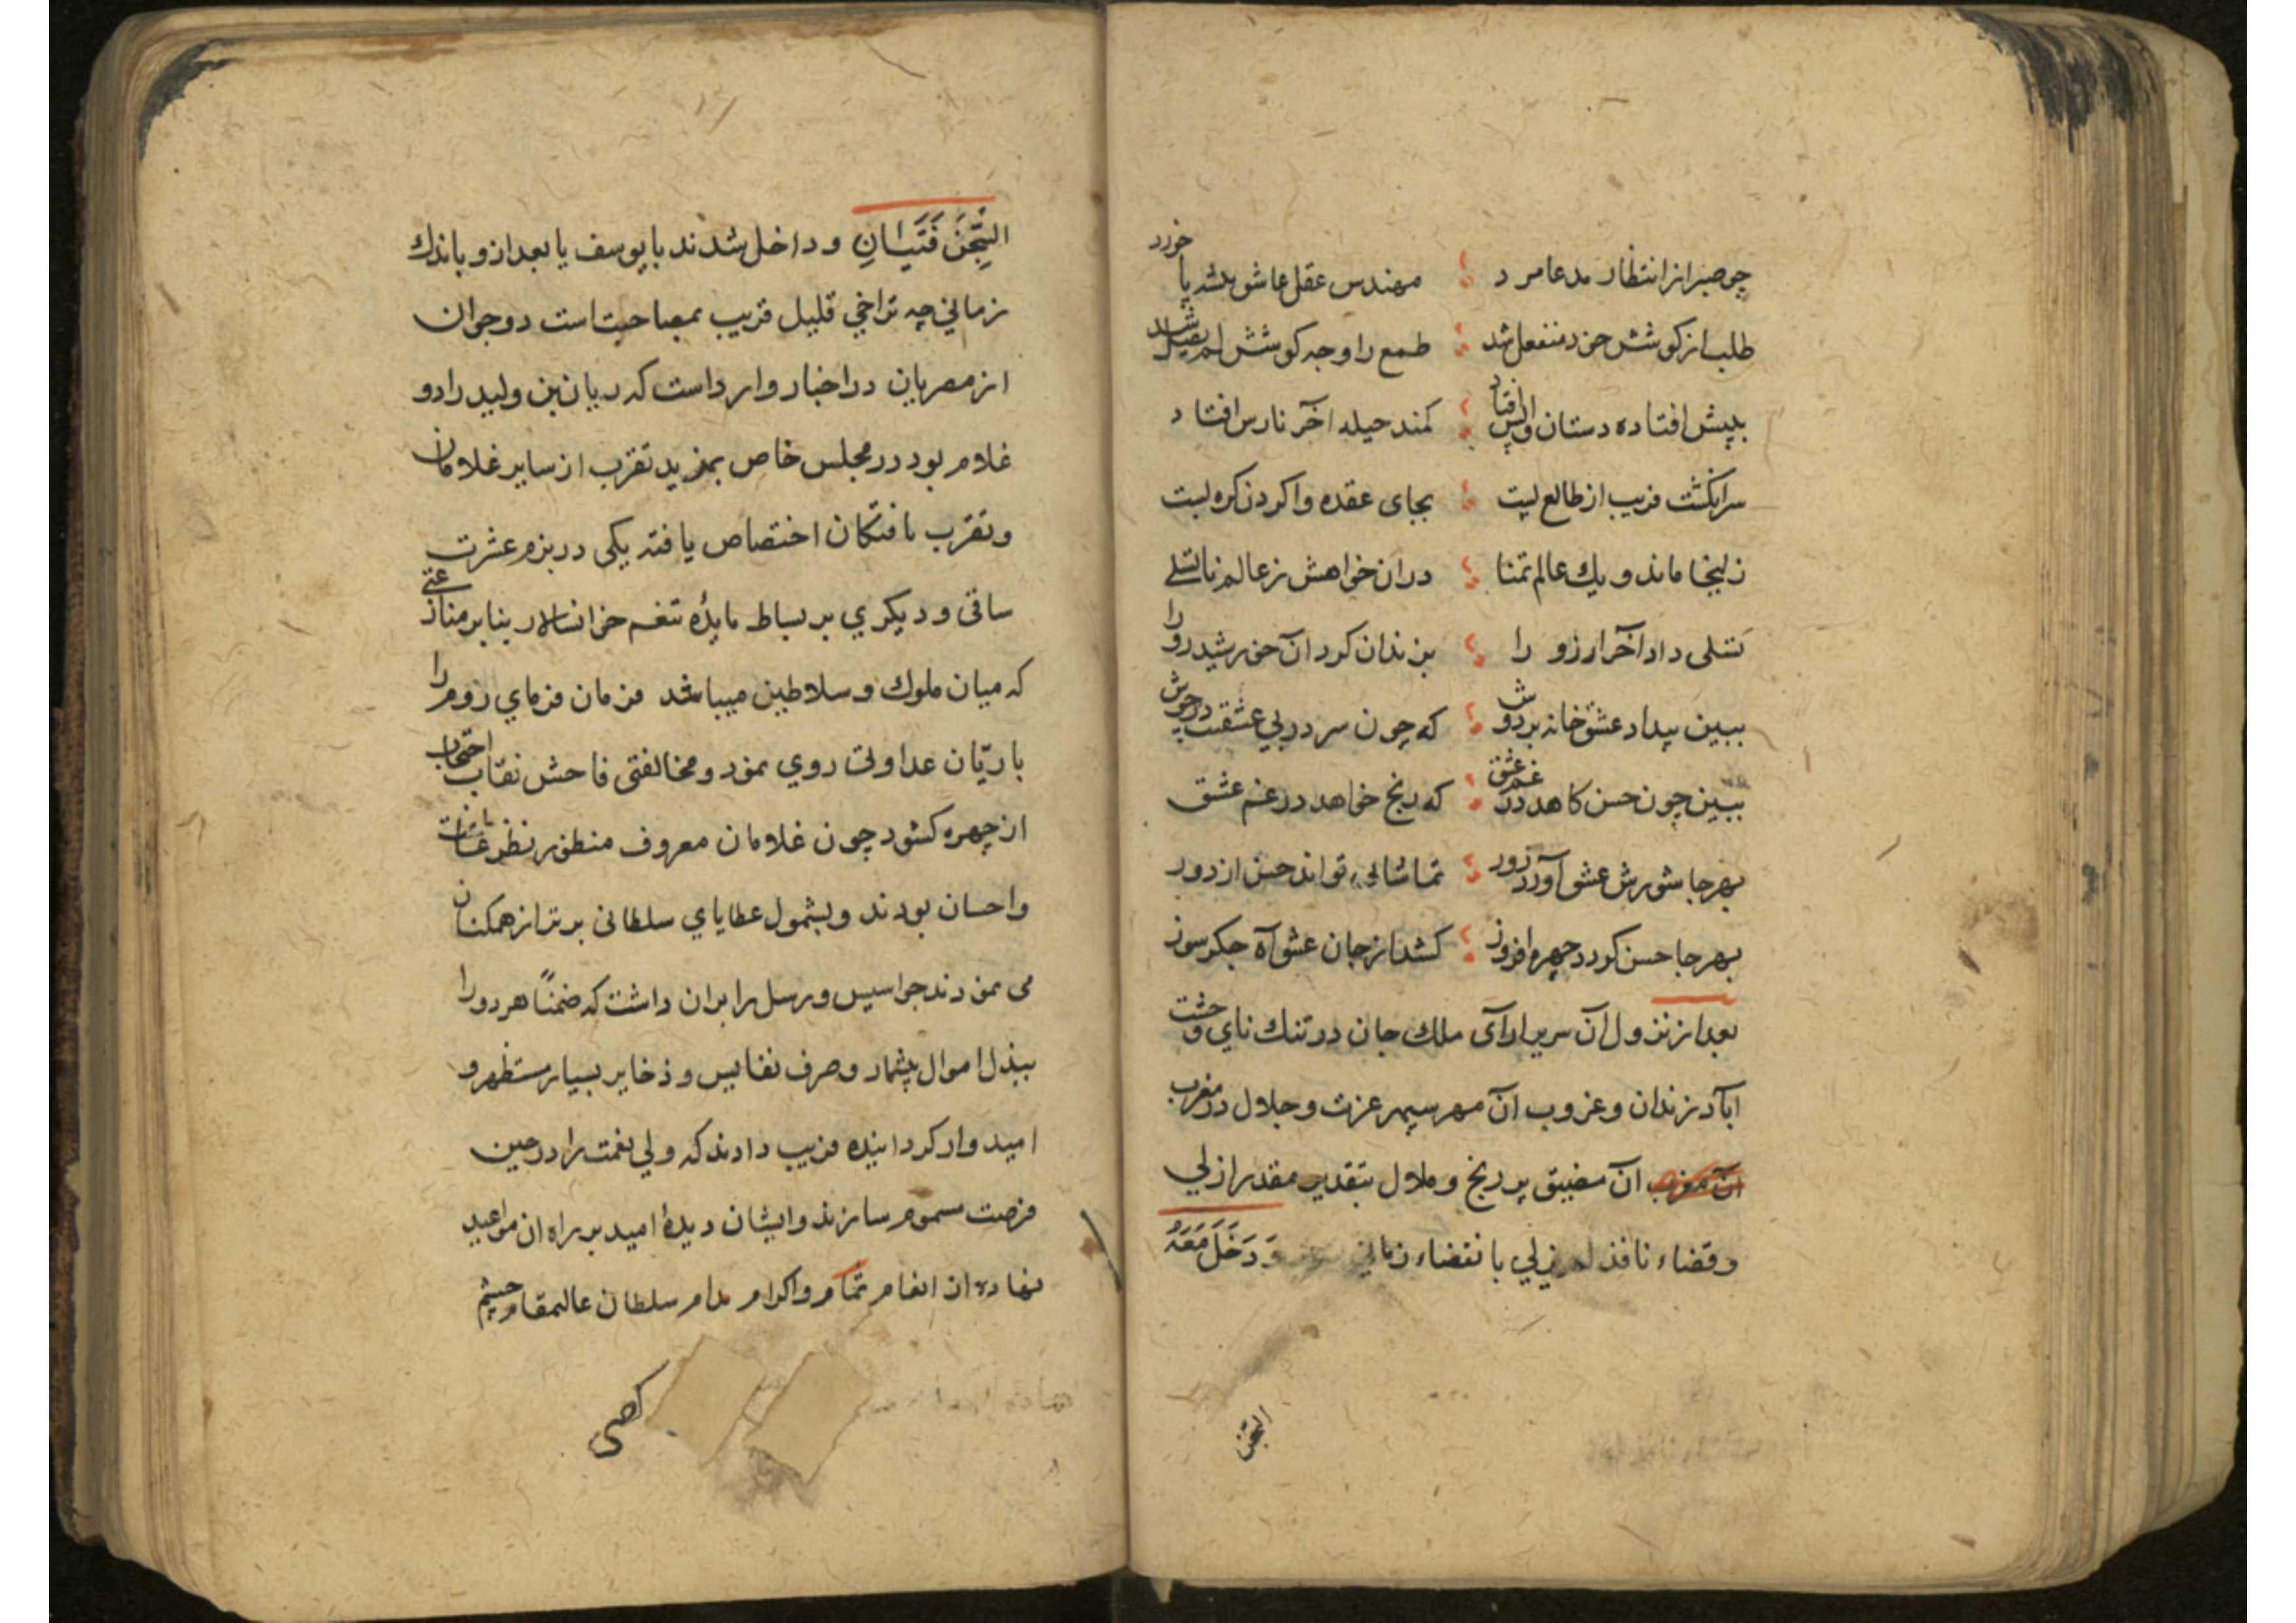 چو صبر از انتظار مدعا مرد مهندس عقل عاشق پیشه پا خورد
طلب از کوشش خود منفعل شد طمع را وجه کوشش شد
بپیش افتاده دستان واپس افتاد کمند حیله آخر نارس افتاد
سرانگشت فریب از طالع پست بجای عقده وا کردن کره بست
زلیخا ماند و یک عالم تمنا دران خواهش ز عالم ناتسلی
تسلی داد آخر آرزو را بزندان کرد آن خورشید رو را
ببین بیداد عشق خانه بردوش که چون سر در پی عشقت
ببین چون حسن کاهد در غم عشق که رنج خواهد در غم عشق
بهر جا شورش عشق آورد زور تماشائی تواند حسن از دور
بهر جا حسن کردد چهره افروز کشد از جان عشق آه جکر سوز
بعد از نزول آن سریر ارای ملک جان در تنک نای وحشت
آباد زندان و غروب آن مهر سپهر عزت و جلال در مغرب
آن مغرب ان مضیق پر رنج و ملال بتقدیر مقدر ازلی
و قضاء نافذ لم یزلی با نقضاء زمانی وَدَخَلَ مَعَهُ
السجن
السِّجْنَ فَتَيَانِ و داخل شدند با یوسف یا بعد از و باندک
زمانی چه تراخی قلیل قریب بمصاحبت است دو جوان
از مصریان در اخبار وارد است که ریان بن ولید را دو
غلام بود در مجلس خاص بمزید تقرب از سایر غلامان
و تقرب یافتکان اختصاص یافته یکی در بزم عشرت
ساقی و دیکری بر بساط مایدۀ تنعم خوانسالار بنابر منازعتی
که میان ملوک و سلاطین میباشد فرمان فرمای روم را
با ریّان عداوتی روی نمود و مخالفتی فاحش نقاب احتجاب
از چهره کشود چون غلامان معروف منظور نظر عنایت
و احسان بودند و بشمول عطایای سلطانی برتر از همکنان
می نمودند جواسیس و رسل را بران داشت که ضمناً هر دو را
ببذل اموال بیشمار و صرف نفایس و ذخایر بسیار مستظهر و
امیدوار کردانیده فریب دادند که ولی نعمت را در حین
فرصت مسموم سازند و ایشان دیدۀ امید بر راه ان مواعید
نهاده از انعام تمام و اکرام مدام سلطان عالیمقام چشم